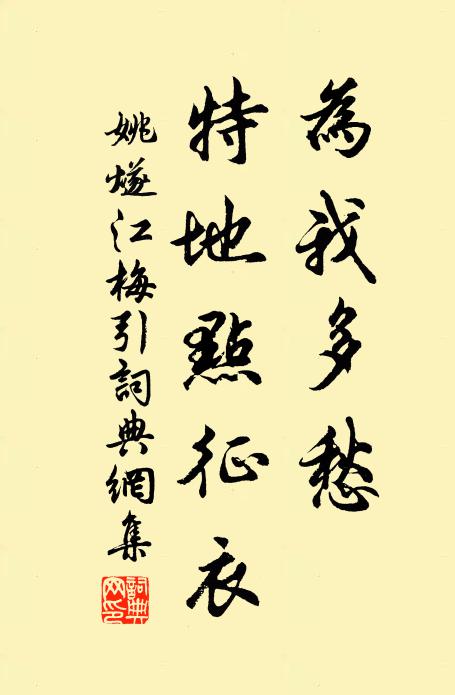 為我多愁
特地點征衣
姚燧江梅引詞典網集
詞典網印